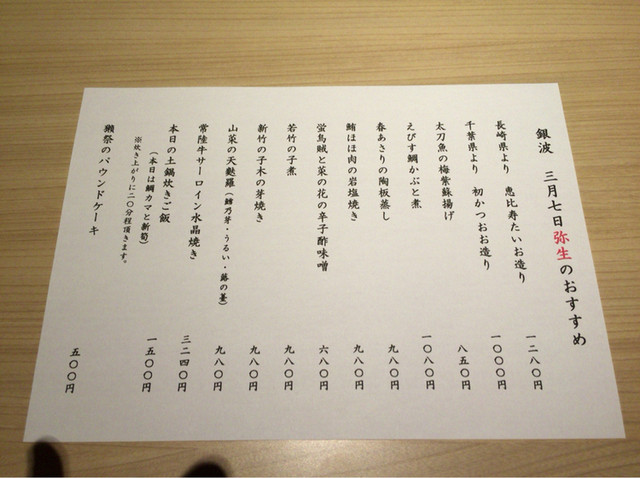 銀波 三月七日弥生のおすすめ
長崎県より 恵比寿たいお造り 一二八〇円
千葉県より 初かつおお造り 一〇〇〇円
太刀魚の梅紫蘇揚げ 八五〇円
えびす鯛かぶと煮 一〇八〇円
春あさりの陶板蒸し 九八〇円
鮪ほほ肉の岩塩焼き 九八〇円
螢烏賊と菜の花の辛子酢味噌 六八〇円
若竹の子煮 九八〇円
新竹の子木の芽焼き 九八〇円
山菜の天麩羅（鱈乃芽・うるい・蕗の薹） 九八〇円
常陸牛サーロイン水晶焼き 三二四〇円
本日の土鍋炊きご飯 一五〇〇円
（本日は鯛カマと新筍）
※炊き上がりに二〇分程頂きます。
獺祭のパウンドケーキ 五〇〇円